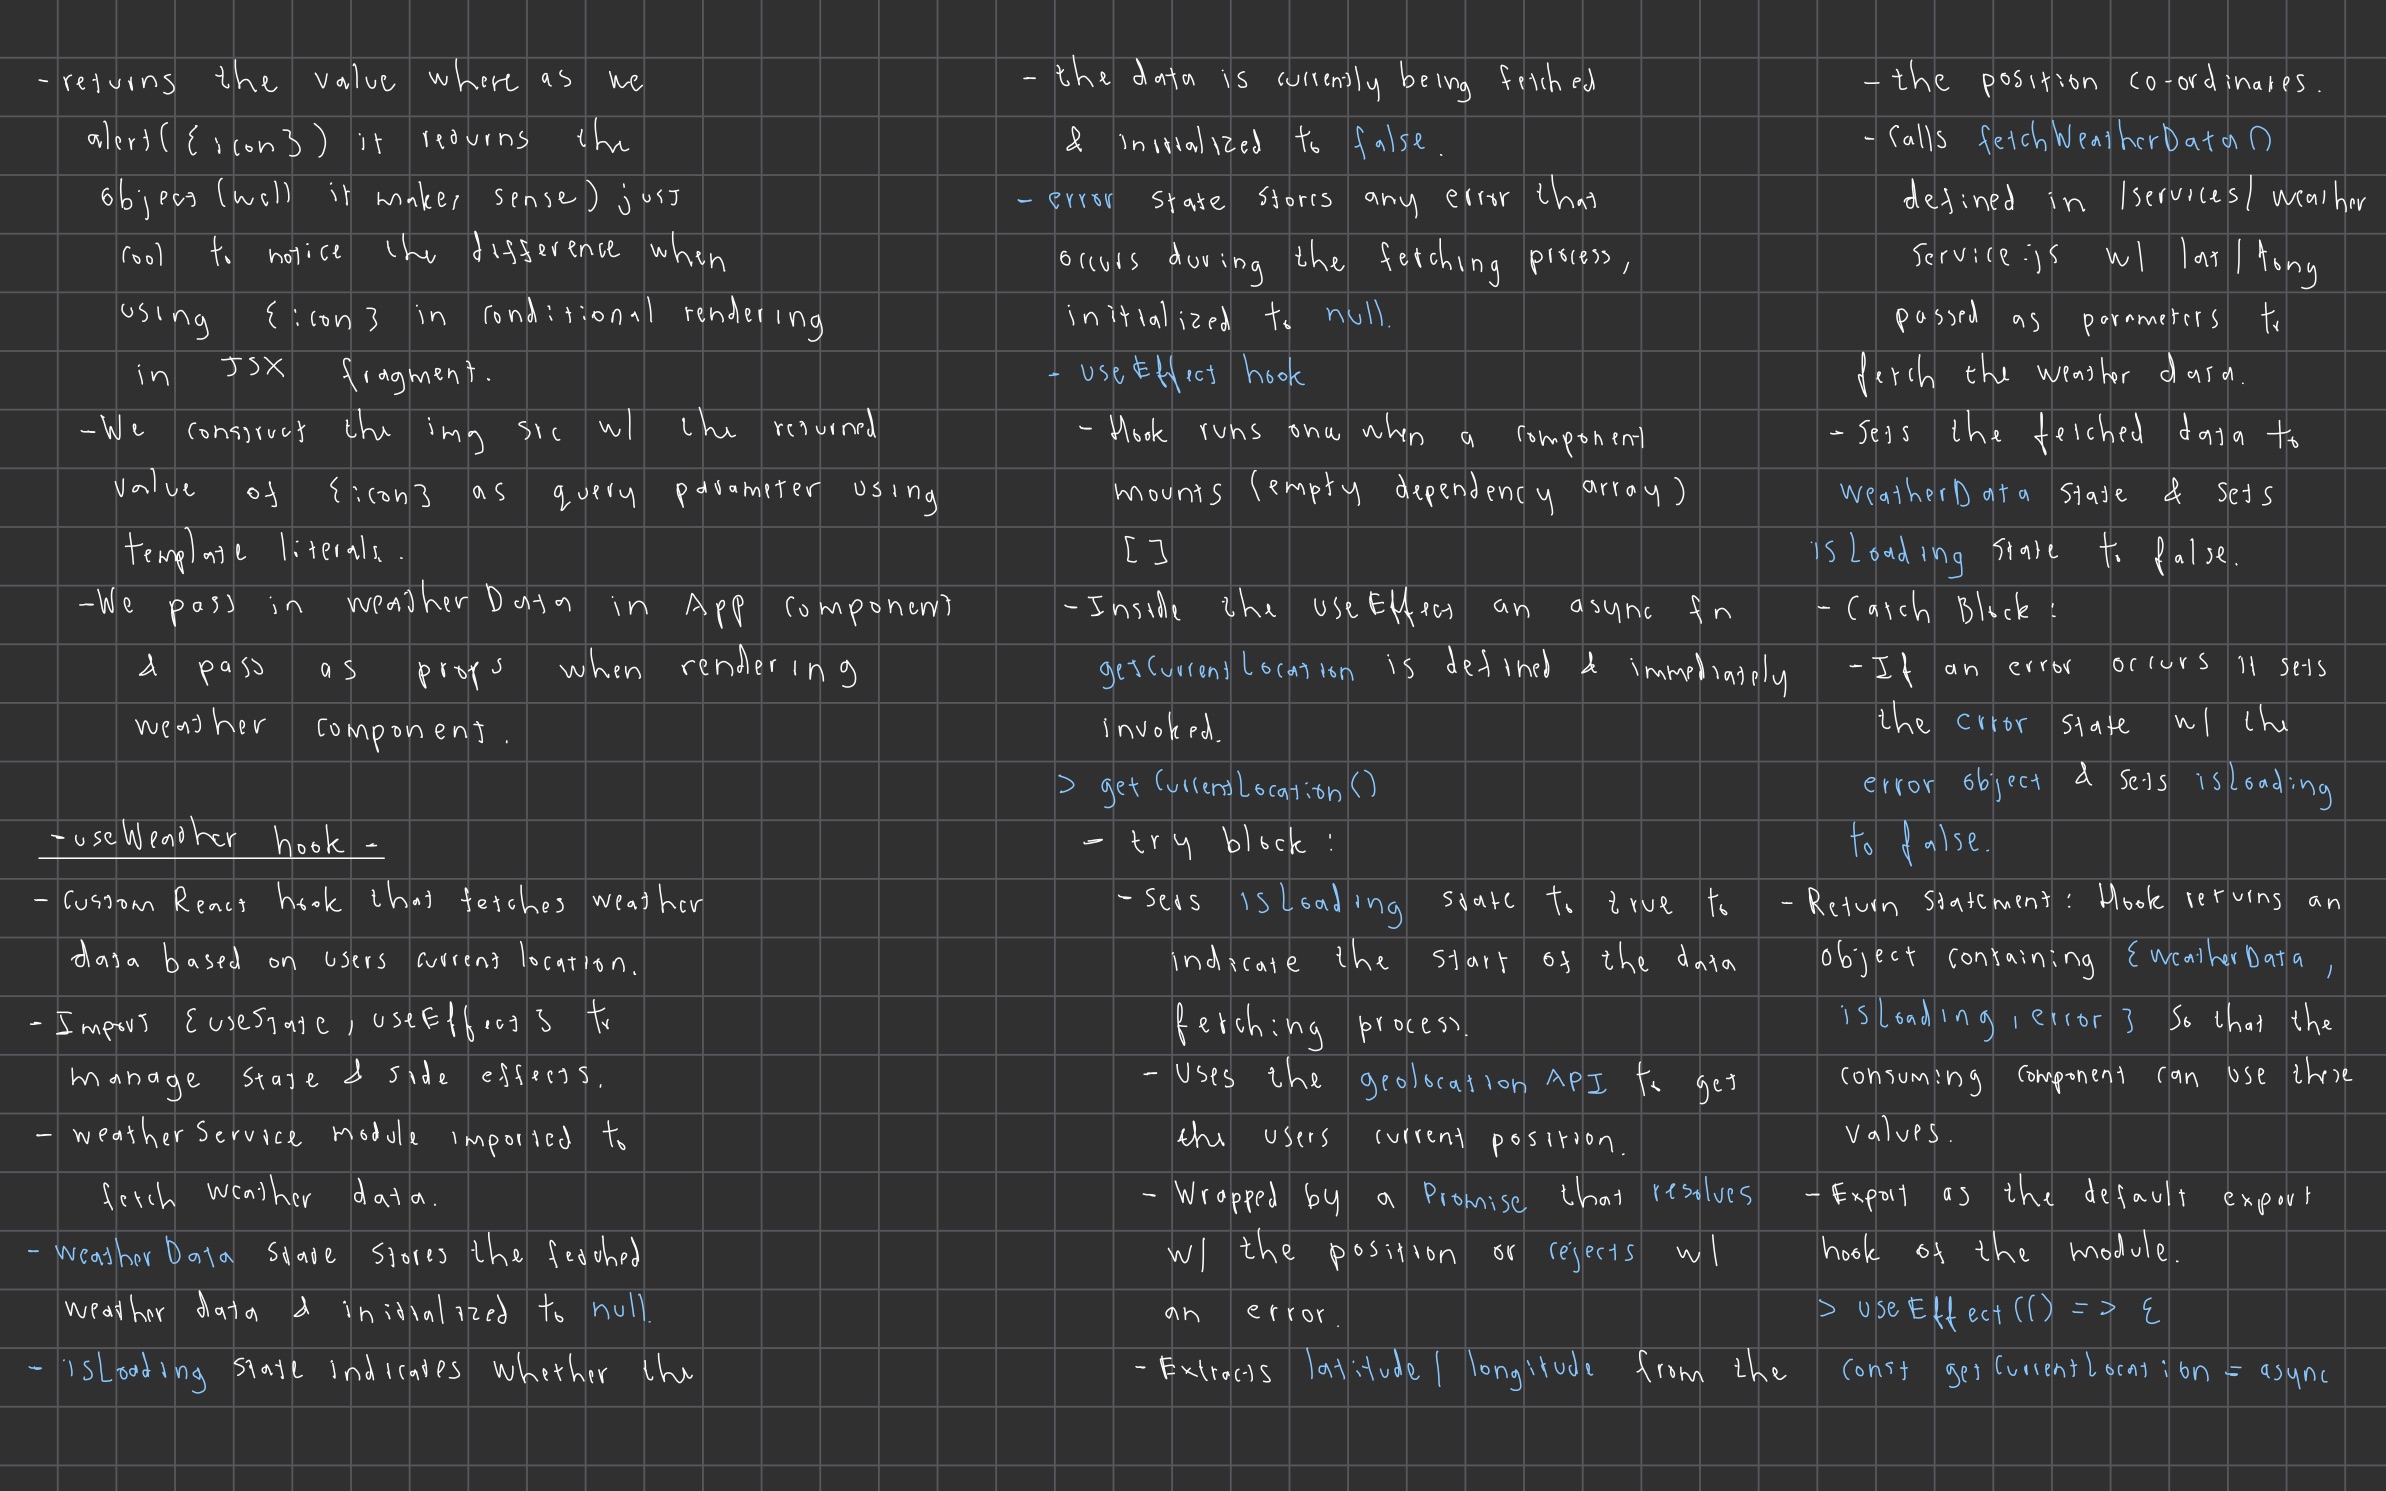 - returns the value where as we
alert({icon}) it returns the
object (well it makes sense) just
cool to notice the difference when
using {icon} in conditional rendering
in JSX fragment.
- We construct the img src w/ the returned
value of {icon} as query parameter using
template literals.
- We pass in weatherData in App component
& pass as props when rendering
weather component.
- useWeather hook -
- Custom React hook that fetches weather
data based on users current location.
- Import {useState, useEffect} to
manage state & side effects.
- weatherService module imported to
fetch weather data.
- weatherData state stores the fetched
weather data & initialized to null.
- isLoading state indicates whether the
- the data is currently being fetched
& initialized to false.
- error state stores any error that
occurs during the fetching process,
initialized to null.
- useEffect hook
- Hook runs once when a component
mounts (empty dependency array)
[]
- Inside the useEffect an async fn
getCurrentLocation is defined & immediately
invoked.
> getCurrentLocation()
- try block:
- Sets isLoading state to true to
indicate the start of the data
fetching process.
- Uses the geolocation API to get
the users current position.
- Wrapped by a Promise that resolves
w/ the position or rejects w/
an error.
- Extracts latitude/longitude from the
- the position co-ordinates.
- Calls fetchWeatherData()
defined in /services/weather
service.js w/ lat/long
passed as parameters to
fetch the weather data.
- Sets the fetched data to
weatherData state & sets
isLoading state to false.
- Catch Block:
- If an error occurs it sets
the error state w/ the
error object & sets isLoading
to false.
- Return Statement: Hook returns an
object containing {weatherData,
isLoading, error} so that the
consuming component can use these
values.
- Export as the default export
hook of the module.
> useEffect(() => {
const getCurrentLocation = async